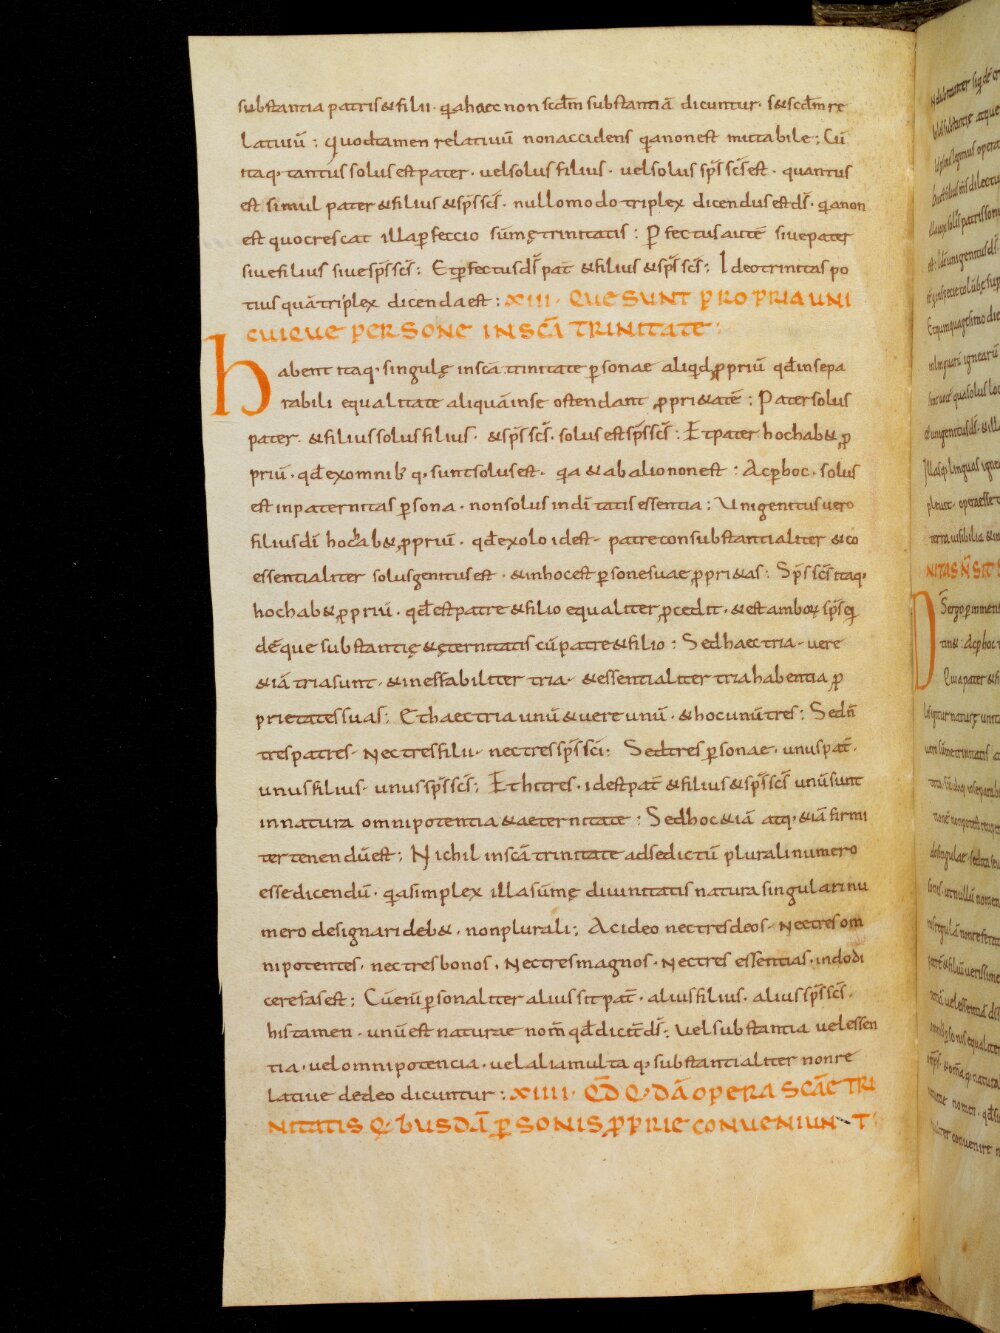 substantia patris & filii · q̄a haec non scd̄m substantiā dicuntur · s& scd̄m re
lativū ; quod tamen relativū non accidens q̄a non est mutabile ; Cū
itaq; tantus solus est pater · vel solus filius · vel solus sp̄s sc̄s est · quantus
est simul pater & filius & sp̄s sc̄s · nullo modo triplex dicendus est ds̄ · q̄a non
est quo crescat illa p̄fectio sūmę trinitatis ; P̄fectus autē sive pater
sive filius sive sp̄s sc̄s ; Et p̄fectus ds̄ pat̄ & filius & sp̄s sc̄s ; Ideo trinitas po
tius quā triplex dicenda est ; XIII · QUE SUNT PROPRIA UNI
CUIQUE PERSONE IN SC̄A TRINITATE ;
Habent itaq; singulę in sc̄a trinitate p̄sonae aliqid ꝓpriū qd̄ insepa
rabili equalitate aliquā in se ostendant ꝓpri&atē ; Pater solus
pater · & filius solus filius · & sp̄s sc̄s · solus est sp̄s sc̄s ; Et pater hoc hab& ꝓ
priū · qd̄ ex omnib; q; sunt solus est · q̄a & ab alio non est ; Ac p̄hoc · solus
est in paternitas p̄sona · non solus in dī tatis essentia ; Unigenitus vero
filius dī hoc hab& ꝓpriū · qd̄ ex olo id est · patre consubstantialiter & co
essentialiter solus genitus est · & in hoc est p̄sone suae ꝓpri&as ; Sp̄s sc̄s itaq;
hoc hab& ꝓpriū · qd̄ est patre & filio equaliter ꝓcedit · & est amboꝝ sp̄s eī
dēque substantię & ęternitatis cū patre & filio ; Sed haec tria · vere
& iā tria sunt · & ineffabiliter tria · & essentialiter tria habentia ꝓ
prietates suas ; Et haec tria unū & vere unū · & hoc unū tres ; Sed n̄
tres patres · nec tres filii · nec tres sp̄s sc̄i ; Sed tres p̄sonae · unus pat̄ ·
unus filius · unus sp̄s sc̄s ; Et h tres · id est pat̄ & filius & sp̄s sc̄s unū sunt
in natura omnipotentia & aeternitate ; Sed hoc & iā atq; & iā firmi
ter tenendū est ; Nichil in sc̄a trinitate ad se dictū plurali numero
esse dicendū · q̄a simplex illa sūmę divinitatis natura singulari nu
mero designari deb& · non plurali ; Ac ideo nec tres deos · nec tres om
nipotentes · nec tres bonos · nec tres magnos · nec tres essentias · indodi
cere fas est ; Cū enī p̄sonaliter alius sit pat̄ · alius filius · alius sp̄s sc̄s ·
his tamen · unū est naturae nom̄ qd̄ dicit̄ ds̄ ; vel substantia vel essen
tia · vel omnipotencia · vel alia multa q; substantialiter non re
lative de deo dicuntur ; XIIII · QD̄ Q;DĀ OPERA SCĀE TRI
NITATIS Q;BUSDĀ P̄SONIS ꝓPRIE CONVENIUN T